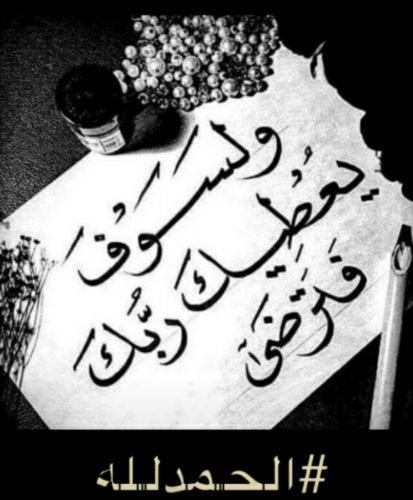 ولسَوفَ
يُعْطِيكَ رَبُّكَ
فَتَرْضَىٰ
#الحمدلله